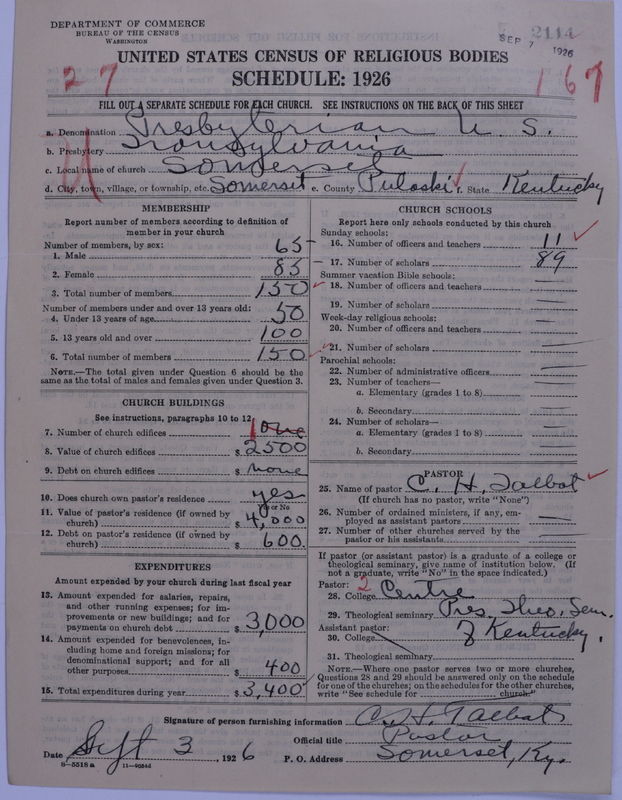 DEPARTMENT OF COMMERCE
BUREAU OF THE CENSUS
WASHINGTON
2114
SEP 7 1926
UNITED STATES CENSUS OF RELIGIOUS BODIES
SCHEDULE: 1926
27
167
FILL OUT A SEPARATE SCHEDULE FOR EACH CHURCH. SEE INSTRUCTIONS ON THE BACK OF THIS SHEET
a. Denomination Presbyterian U. S.
b. Presbytery Transylvania
c. Local name of church Somerset
d. City, town, village, or township, etc. Somerset e. County Pulaski f. State Kentucky
MEMBERSHIP
Report number of members according to definition of
member in your church
Number of members, by sex:
1. Male 65
2. Female 85
3. Total number of members 150
Number of members under and over 13 years old:
4. Under 13 years of age 50
5. 13 years old and over 100
6. Total number of members 150
NOTE.—The total given under Question 6 should be
the same as the total of males and females given under Question 3.
CHURCH BUILDINGS
See instructions, paragraphs 10 to 12
7. Number of church edifices 1 One
8. Value of church edifices $ 2500
9. Debt on church edifices $ none
10. Does church own pastor's residence yes
Yes or No
11. Value of pastor's residence (if owned by
church) $ 4,000
12. Debt on pastor's residence (if owned by
church) $ 600.
EXPENDITURES
Amount expended by your church during last fiscal year
13. Amount expended for salaries, repairs,
and other running expenses; for im-
provements or new buildings; and for
payments on church debt $ 3,000
14. Amount expended for benevolences, in-
cluding home and foreign missions; for
denominational support; and for all
other purposes $ 400
15. Total expenditures during year $ 3,400
CHURCH SCHOOLS
Report here only schools conducted by this church
Sunday schools:
16. Number of officers and teachers 11
17. Number of scholars 89
Summer vacation Bible schools:
18. Number of officers and teachers
19. Number of scholars
Week-day religious schools:
20. Number of officers and teachers
21. Number of scholars
Parochial schools:
22. Number of administrative officers
23. Number of teachers—
a. Elementary (grades 1 to 8)
b. Secondary
24. Number of scholars—
a. Elementary (grades 1 to 8)
b. Secondary
PASTOR
25. Name of pastor C. H. Talbot
(If church has no pastor, write "None")
26. Number of ordained ministers, if any, em-
ployed as assistant pastors
27. Number of other churches served by the
pastor or his assistants
If pastor (or assistant pastor) is a graduate of a college or
theological seminary, give name of institution below. (If
not a graduate, write "No" in the space indicated.)
Pastor: 2
28. College Centre
29. Theological seminary Pres. Theo. Sem.
Assistant pastor: of Kentucky.
30. College
31. Theological seminary
NOTE.—Where one pastor serves two or more churches,
Questions 28 and 29 should be answered only on the schedule
for one of the churches; on the schedules for the other churches,
write "See schedule for church."
Signature of person furnishing information C. H. Talbot
Official title Pastor
Date Sept 3, 1926 P. O. Address Somerset, Ky.
8-5518 a